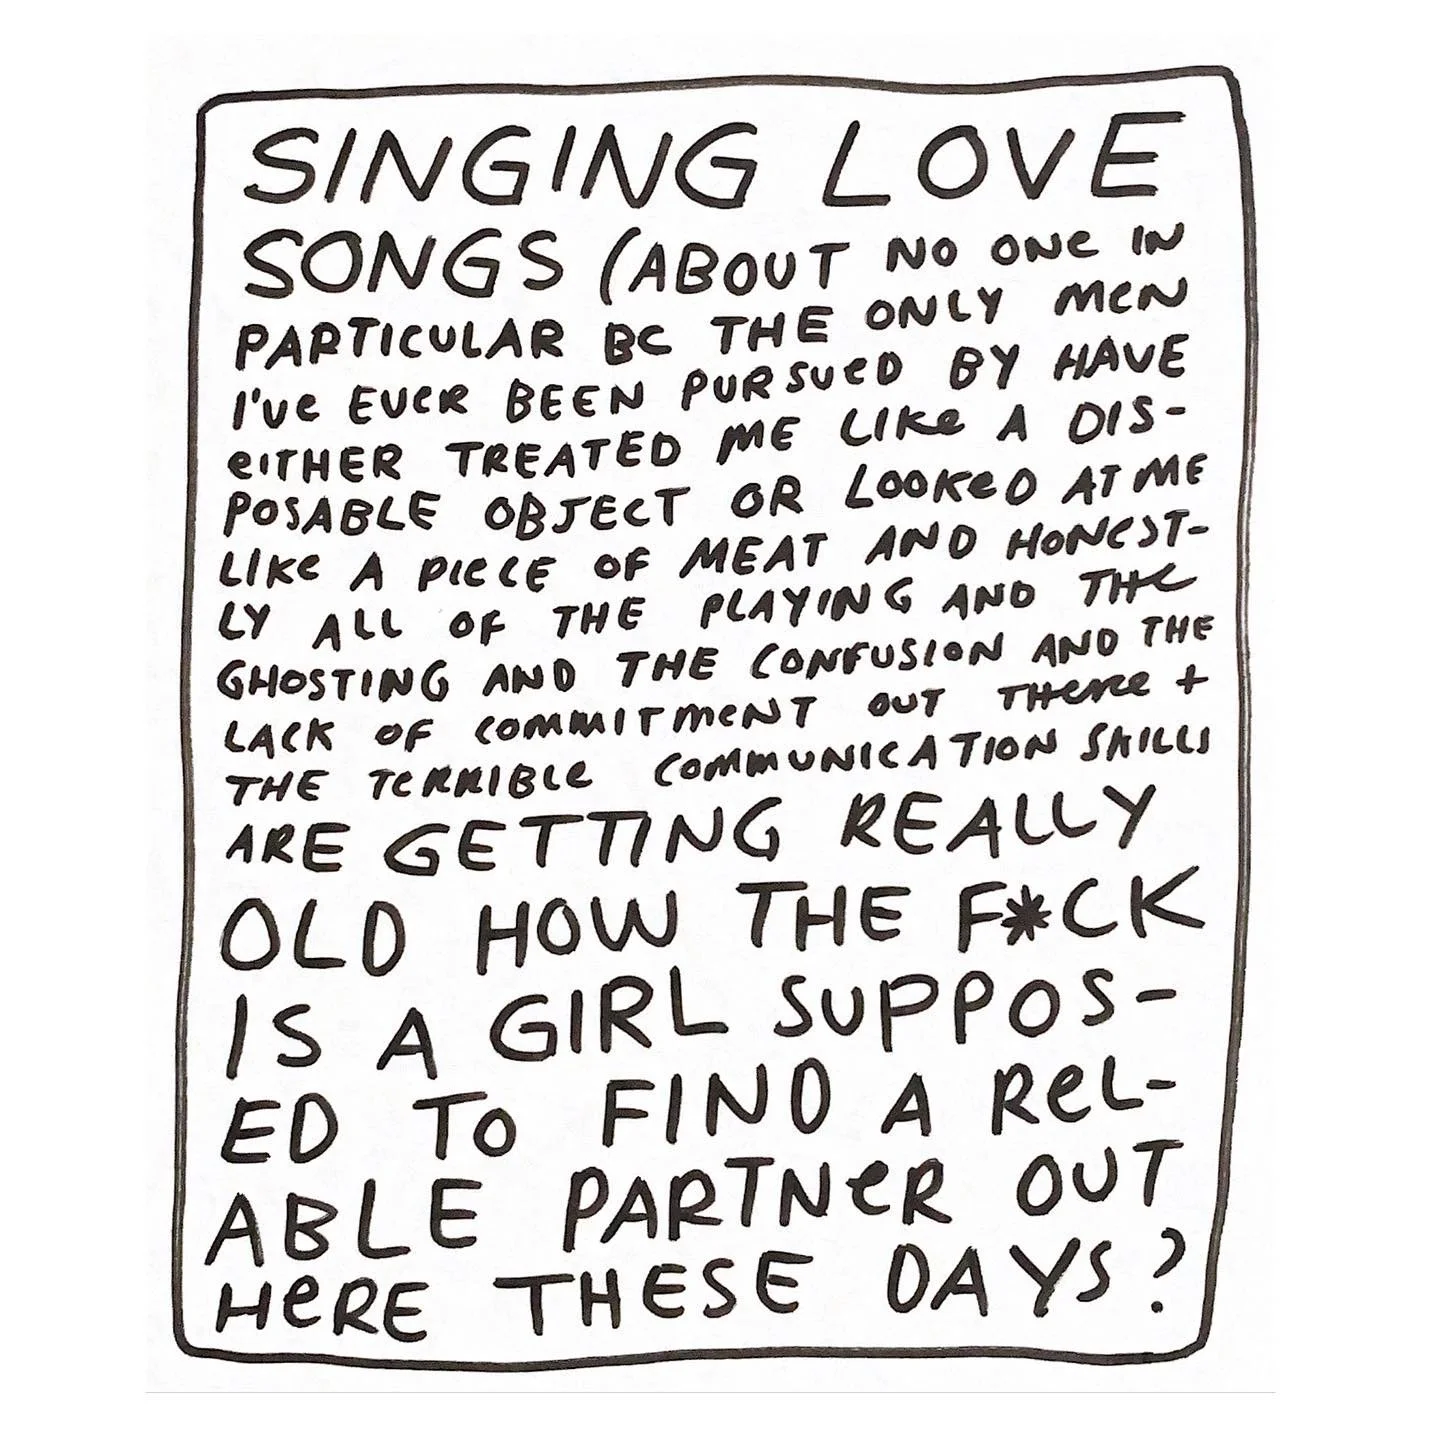 SINGING LOVE
SONGS (ABOUT NO ONE IN
PARTICULAR BC THE ONLY MEN
I'VE EVER BEEN PURSUED BY HAVE
EITHER TREATED ME LIKE A DIS-
POSABLE OBJECT OR LOOKED AT ME
LIKE A PIECE OF MEAT AND HONEST-
LY ALL OF THE PLAYING AND THE
GHOSTING AND THE CONFUSION AND THE
LACK OF COMMITMENT OUT THERE +
THE TERRIBLE COMMUNICATION SKILLS
ARE GETTING REALLY
OLD HOW THE F*CK
IS A GIRL SUPPOS-
ED TO FIND A REL-
ABLE PARTNER OUT
HERE THESE DAYS?